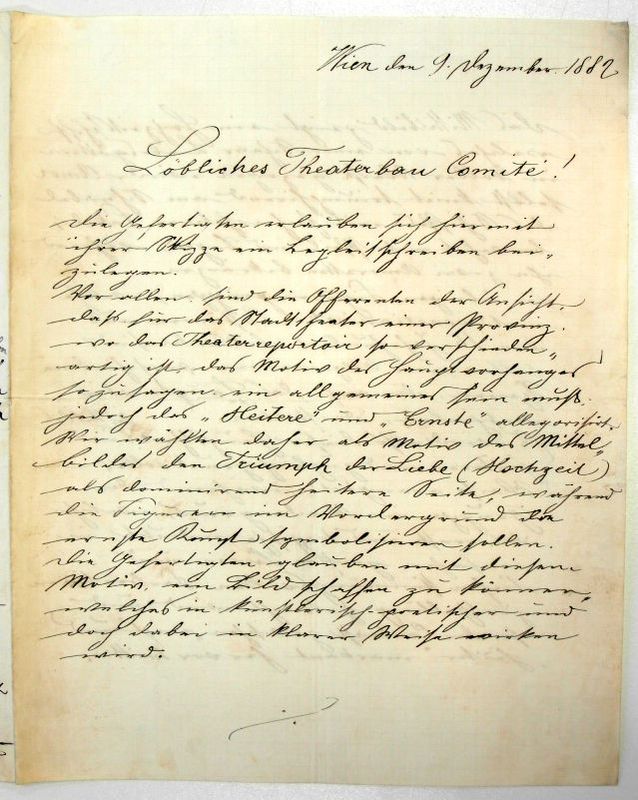 Wien den 9. Dezember 1882
Löbliches Theaterbau Comité!
Die Gefertigten erlauben sich hiermit
ihrer Skizze ein Begleitschreiben bei-
zulegen.
Vor allen sind die Offerenten der Ansicht,
daß für das Stadttheater einer Provinz.
wo das Theaterreportoir so verschieden-
artig ist, das Motiv des Hauptvorhanges
sozusagen ein allgemeines sein muß.
jedoch das „Heitere" und „Ernste" allegorisirt.
Wir wählten daher als Motiv des Mittel-
bildes den Triumph der Liebe (Hochzeit)
als dominirend heitere Seite, während
die Figuren im Vordergrund die
ernste Kunst symbolisieren sollen.
Die Gefertigten glauben mit diesem
Motiv ein Bild schaffen zu können,
welches in künstlerisch-poetischer und
doch dabei in klarer Weise wirken
wird.
./.